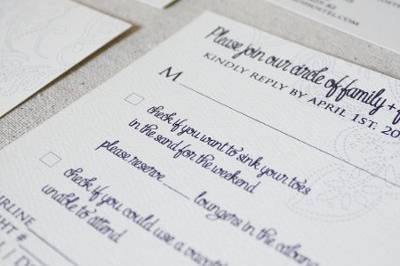 Please join our circle of family +
KINDLY REPLY BY APRIL 1ST, 20
M
check if you want to sink your toes
in the sand for the weekend
please reserve ____ loungers in the cabana
check if you could use a
unable to attend
AIRLINE